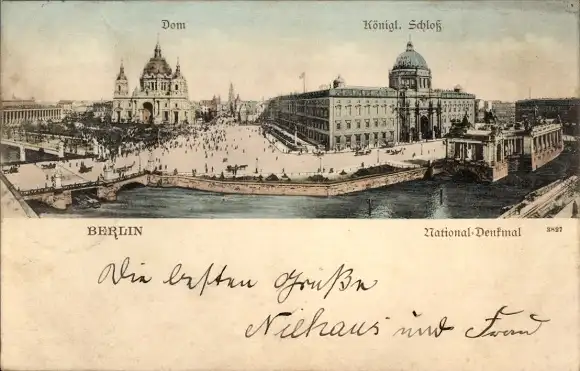 Dom
Königl. Schloß
BERLIN
National-Denkmal 3827
Die besten Grüße
Niehaus und Frau